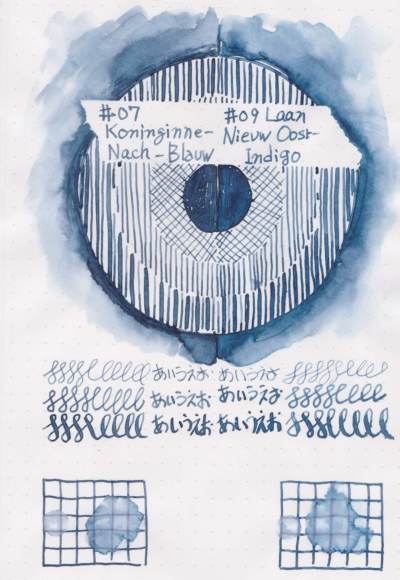 #07
Koninginne-
Nach-Blauw
#09 Laan
Nieuw Oost-
Indigo
あいうえお あいうえお
あいうえお あいうえお
あいうえお あいうえお